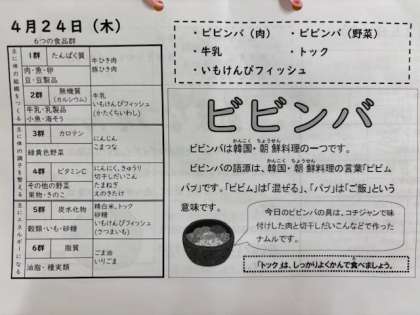 4月24日（木）
6つの食品群
主に体の組織をつくる
1群 たんぱく質
肉・魚・卵
豆・豆製品
牛ひき肉
豚ひき肉
2群 無機質
（カルシウム）
牛乳・乳製品
小魚・海そう
牛乳
いもけんぴフィッシュ
（かたくちいわし）
主に体の調子を整える
3群 カロテン
緑黄色野菜
にんじん
こまつな
4群 ビタミンC
その他の野菜
果物・きのこ
にんにく、きゅうり
切干しだいこん
たまねぎ
えのきたけ
主にエネルギーになる
5群 炭水化物
穀類・いも・砂糖
精白米、トック
砂糖
いもけんぴフィッシュ
（さつまいも）
6群 脂質
油脂・種実類
ごま油
いりごま
・ビビンバ（肉） ・ビビンバ（野菜）
・牛乳 ・トック
・いもけんぴフィッシュ
ビビンバ
かんこく ちょうせん
ビビンバは韓国・朝鮮料理の一つです。
かんこく ちょうせん
ビビンバの語源は、韓国・朝鮮料理の言葉「ビビム
バプ」です。「ビビム」は「混ぜる」、「バプ」は「ご飯」という
意味です。
今日のビビンバの具は、コチジャンで味
付けした肉と切干しだいこんなどで作った
ナムルです。
「トック」は、しっかりよくかんで食べましょう。